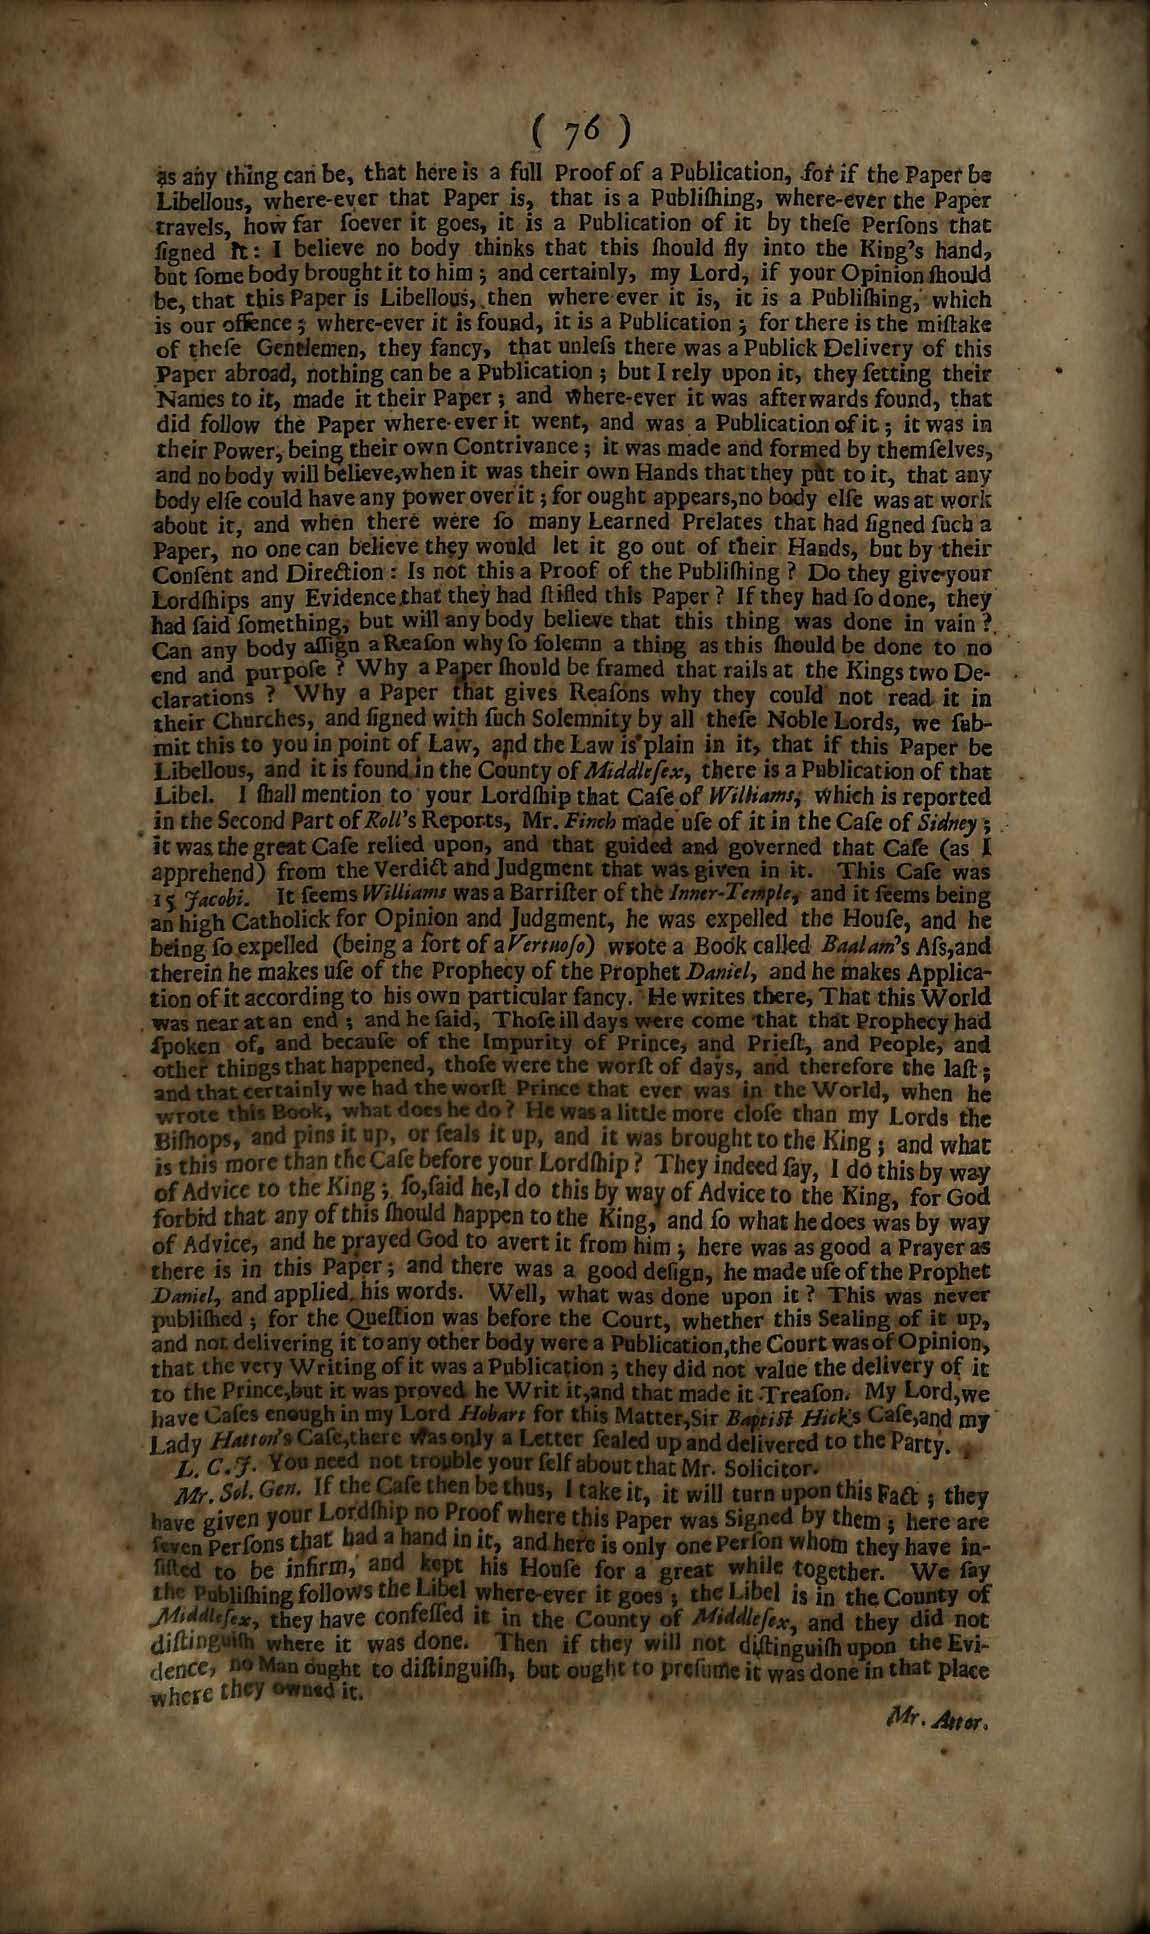 ( 76 )
as any thing can be, that here is a full Proof of a Publication, for if the Paper be
Libellous, where-ever that Paper is, that is a Publiſhing, where-ever the Paper
travels, how far ſoever it goes, it is a Publication of it by theſe Perſons that
ſigned it: I believe no body thinks that this ſhould fly into the King's hand,
but ſome body brought it to him; and certainly, my Lord, if your Opinion ſhould
be, that this Paper is Libellous, then where-ever it is, it is a Publiſhing, which
is our offence; where-ever it is found, it is a Publication; for there is the miſtake
of theſe Gentlemen, they fancy, that unleſs there was a Publick Delivery of this
Paper abroad, nothing can be a Publication; but I rely upon it, they ſetting their
Names to it, made it their Paper; and where-ever it was afterwards found, that
did follow the Paper where-ever it went, and was a Publication of it; it was in
their Power, being their own Contrivance; it was made and formed by themſelves,
and no body will believe, when it was their own Hands that they put to it, that any
body elſe could have any power over it; for ought appears, no body elſe was at work
about it, and when there were ſo many Learned Prelates that had ſigned ſuch a
Paper, no one can believe they would let it go out of their Hands, but by their
Conſent and Direction: Is not this a Proof of the Publiſhing? Do they give your
Lordſhips any Evidence that they had ſtifled this Paper? If they had ſo done, they
had ſaid ſomething, but will any body believe that this thing was done in vain?
Can any body aſſign a Reaſon why ſo ſolemn a thing as this ſhould be done to no
end and purpoſe? Why a Paper ſhould be framed that rails at the Kings two De-
clarations? Why a Paper that gives Reaſons why they could not read it in
their Churches, and ſigned with ſuch Solemnity by all theſe Noble Lords, we ſub-
mit this to you in point of Law, and the Law is plain in it, that if this Paper be
Libellous, and it is found in the County of Middleſex, there is a Publication of that
Libel. I ſhall mention to your Lordſhip that Caſe of Williams, which is reported
in the Second Part of Roll's Reports, Mr. Finch made uſe of it in the Caſe of Sidney;
it was the great Caſe relied upon, and that guided and governed that Caſe (as I
apprehend) from the Verdict and Judgment that was given in it. This Caſe was
15 Jacobi. It ſeems Williams was a Barriſter of the Inner-Temple, and it ſeems being
an high Catholick for Opinion and Judgment, he was expelled the Houſe, and he
being ſo expelled (being a ſort of a Vertuoſo) wrote a Book called Baalam's Aſs, and
therein he makes uſe of the Prophecy of the Prophet Daniel, and he makes Applica-
tion of it according to his own particular fancy. He writes there, That this World
was near at an end; and he ſaid, Thoſe ill days were come that that Prophecy had
ſpoken of, and becauſe of the Impurity of Prince, and Prieſt, and People, and
other things that happened, thoſe were the worſt of days, and therefore the laſt;
and that certainly we had the worſt Prince that ever was in the World, when he
wrote this Book, what does he do? He was a little more cloſe than my Lords the
Biſhops, and pins it up, or ſeals it up, and it was brought to the King; and what
is this more than the Caſe before your Lordſhip? They indeed ſay, I do this by way
of Advice to the King; ſo, ſaid he, I do this by way of Advice to the King, for God
forbid that any of this ſhould happen to the King, and ſo what he does was by way
of Advice, and he prayed God to avert it from him; here was as good a Prayer as
there is in this Paper; and there was a good deſign, he made uſe of the Prophet
Daniel, and applied his words. Well, what was done upon it? This was never
publiſhed; for the Queſtion was before the Court, whether this Sealing of it up,
and not delivering it to any other body were a Publication, the Court was of Opinion,
that the very Writing of it was a Publication; they did not value the delivery of it
to the Prince, but it was proved he Writ it, and that made it Treaſon. My Lord, we
have Caſes enough in my Lord Hobart for this Matter, Sir Baptiſt Hick's Caſe, and my
Lady Hatton's Caſe, there was only a Letter ſealed up and delivered to the Party.
L. C. J. You need not trouble your ſelf about that Mr. Solicitor.
Mr. Sol. Gen. If the Caſe then be thus, I take it, it will turn upon this Fact; they
have given your Lordſhip no Proof where this Paper was Signed by them; here are
ſeven Perſons that had a hand in it, and here is only one Perſon whom they have in-
ſiſted to be infirm, and kept his Houſe for a great while together. We ſay
the Publiſhing follows the Libel where-ever it goes; the Libel is in the County of
Middleſex, they have confeſſed it in the County of Middleſex, and they did not
diſtinguiſh where it was done. Then if they will not diſtinguiſh upon the Evi-
dence, no Man ought to diſtinguiſh, but ought to preſume it was done in that place
where they owned it.
Mr. Attor.